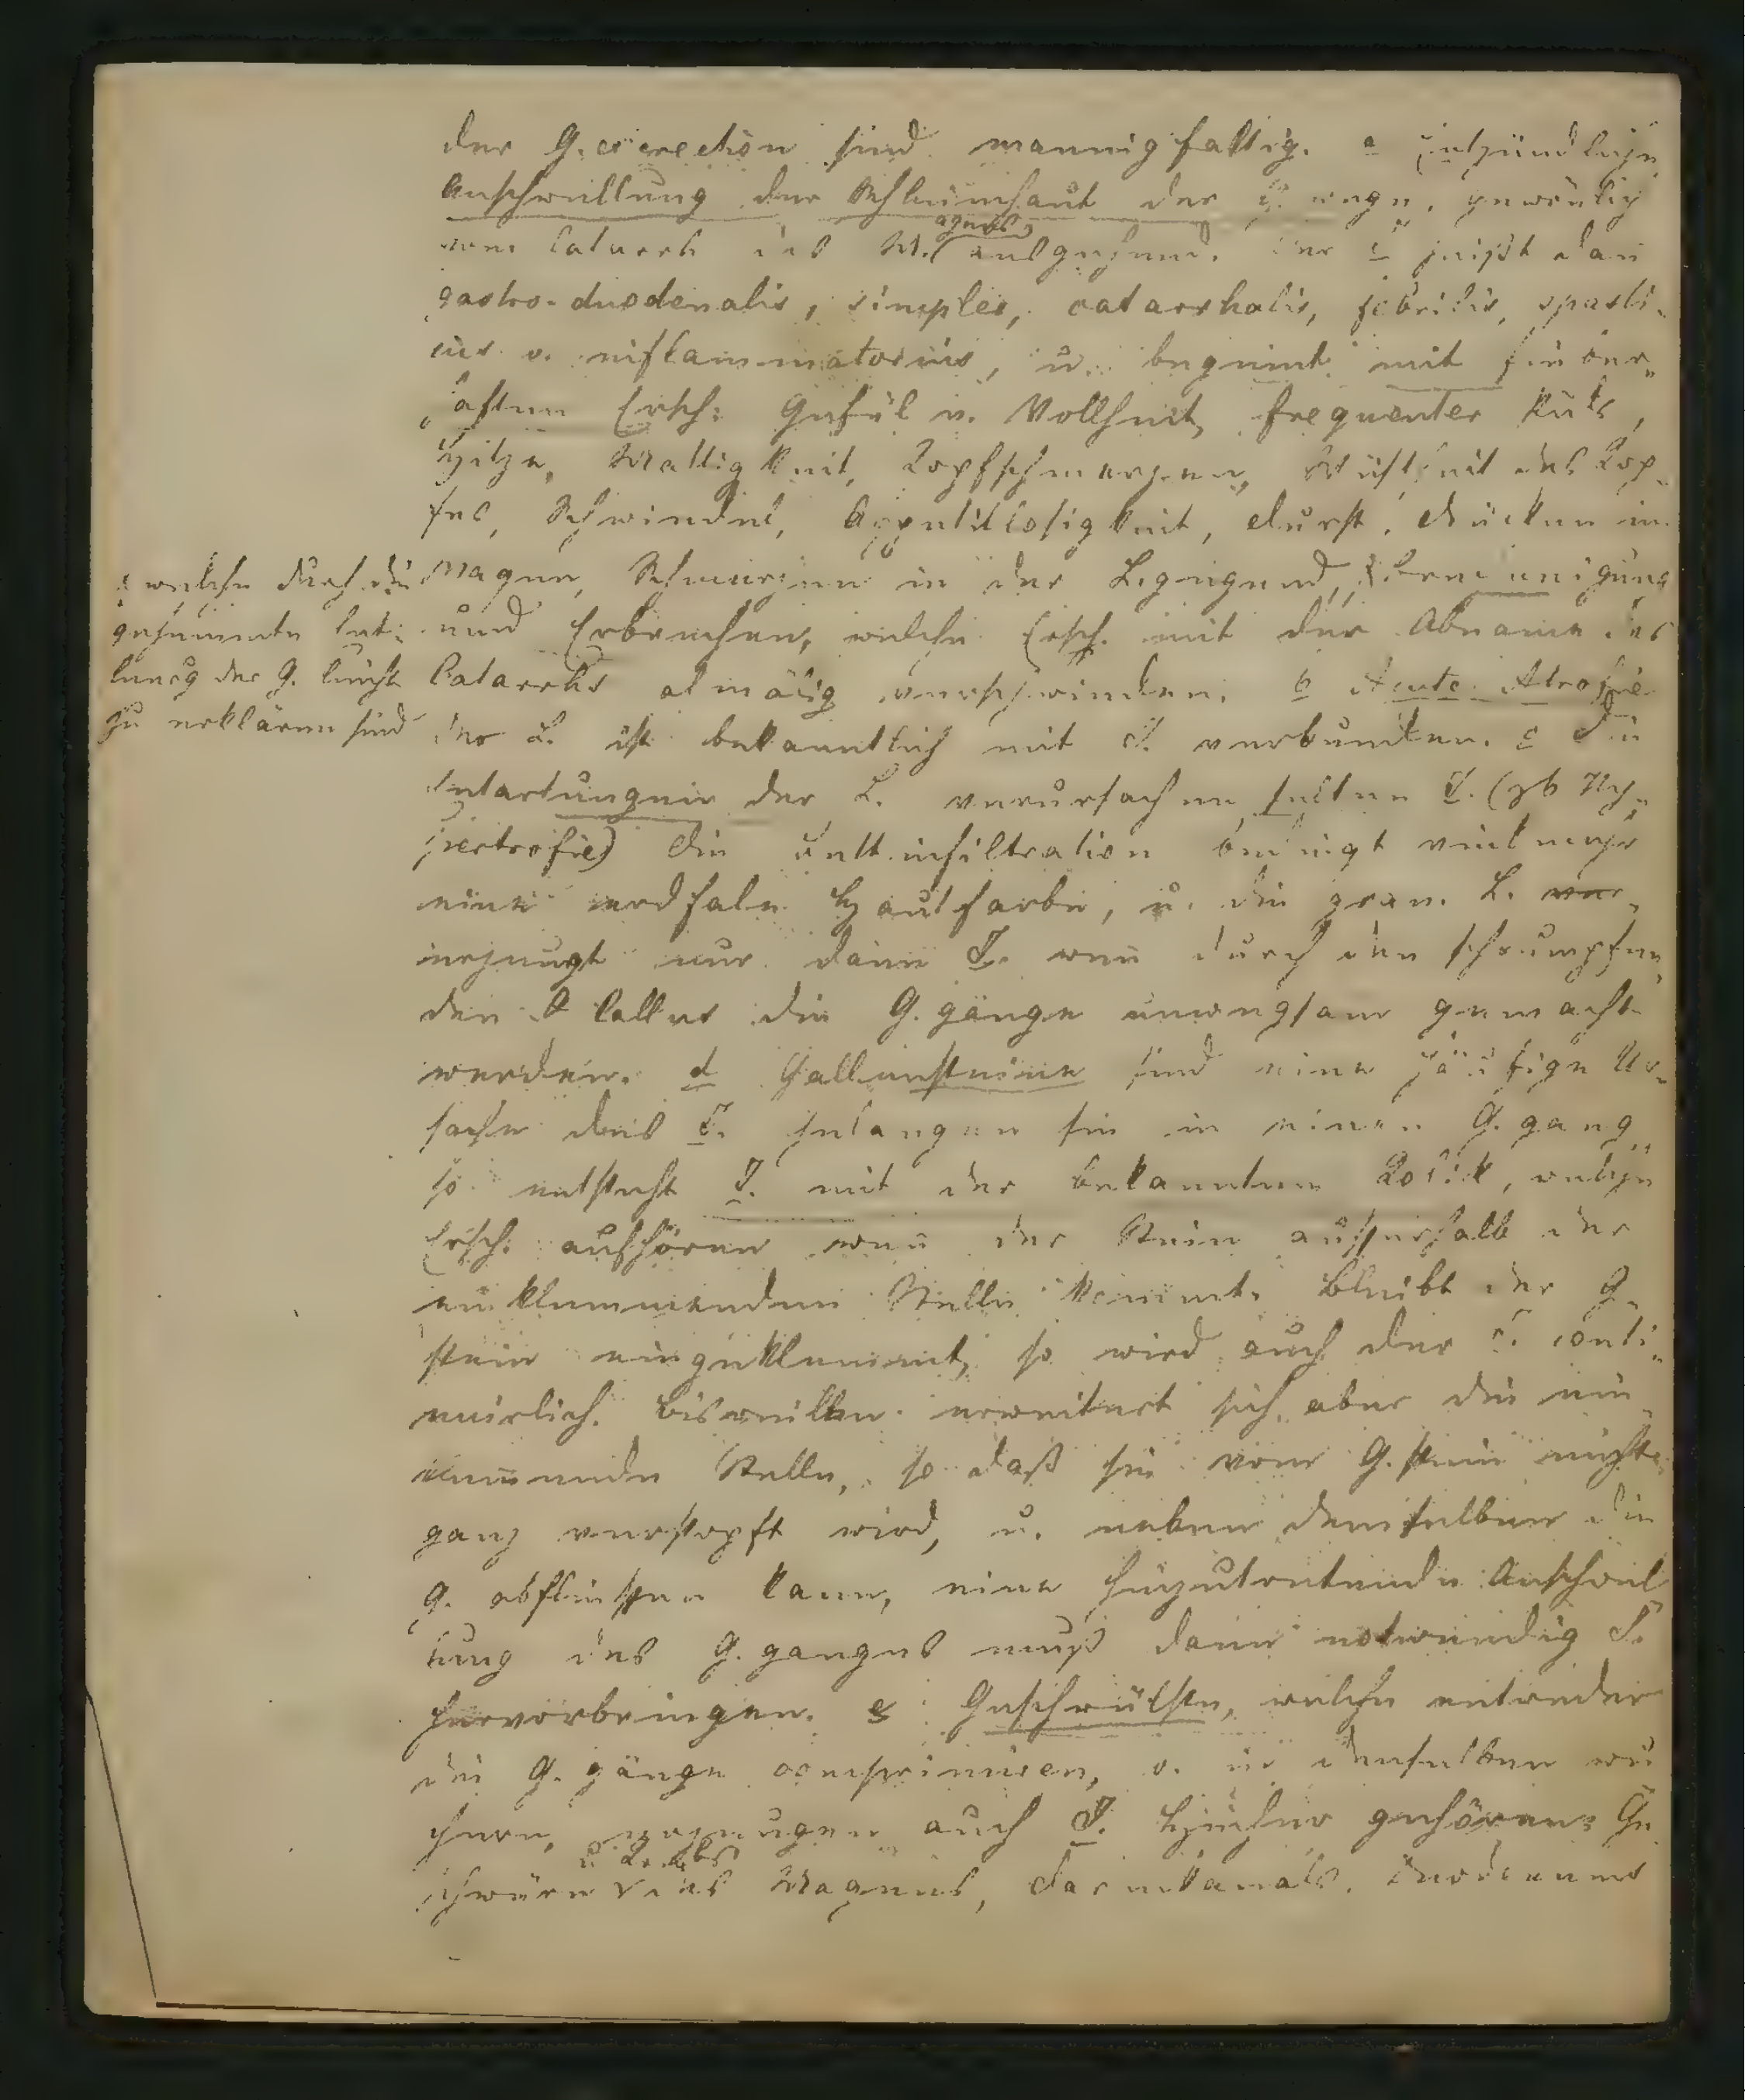 der G. excretion sind mannigfaltig. a Entzündliche
Anschwellung der Schleimhaut der G. wege, gewönlich
vom Catarrh des M. agens ausgehend. Der I. heißt dan
gastro-duodenalis, simplex, catarrhalis, febrilis, spasti-
cus o. inflammatorius, u. beginnt mit fieber-
haften Ersch: Gefül v. Vollheit, frequenter Puls,
Hitze, Mattigkeit, Kopfschmerzen, Wüstheit des Kop-
fes, Schwindel, Appetitlosigkeit, Durst, Drücken im
Magen, Schmerzen in der L. gegend,
und Erbrechen, welche Ersch. mit der Abname des
Catarrhs almälig verschwinden. b Acute Atrofie
der L. ist bekanntlich mit I. verbunden. c Die
Entartungen der L. verursachen selten I. (zb Hy-
pertrofie) Die Fettinfiltration bedingt vielmehr
eine erdfale Hautfarbe, u. die gran. L. ver-
erzeugt nur dann I. wen durch den schrumpfen
den Callus die G. gänge unwegsam gemacht
werden. d Gallensteine sind eine häufige Ur-
sache des I. gelangen sie in einen G. gang,
so entsteht I. mit der bekannten Kolik, welche
Ersch. aufhören wen der Stein ausserhalb der
einklemmenden Stelle kommt. Bleibt der G.
stein eingeklemmt, so wird auch der I. conti-
nuirlich. Bisweilen erweitert sich aber die ein
klemmende Stelle, so daß sie vom G. stein nicht
ganz verstopft wird, u. neben demselben die
G. abfliessen kann, eine hinzutretende Anschwel
lung des G. ganges muß dann notwendig I.
hervorbringen. e Geschwülste, welche entweder
die G. gänge comprimiren, o. in denselben wu
chern, erzeugen auch I. Hieher gehören: Ge
schwüre u. Krebs des Magens, Darmkanals. Duodenums
welche durch die
gehemmte Ent-
leerung der G. leicht
zu erklären sind